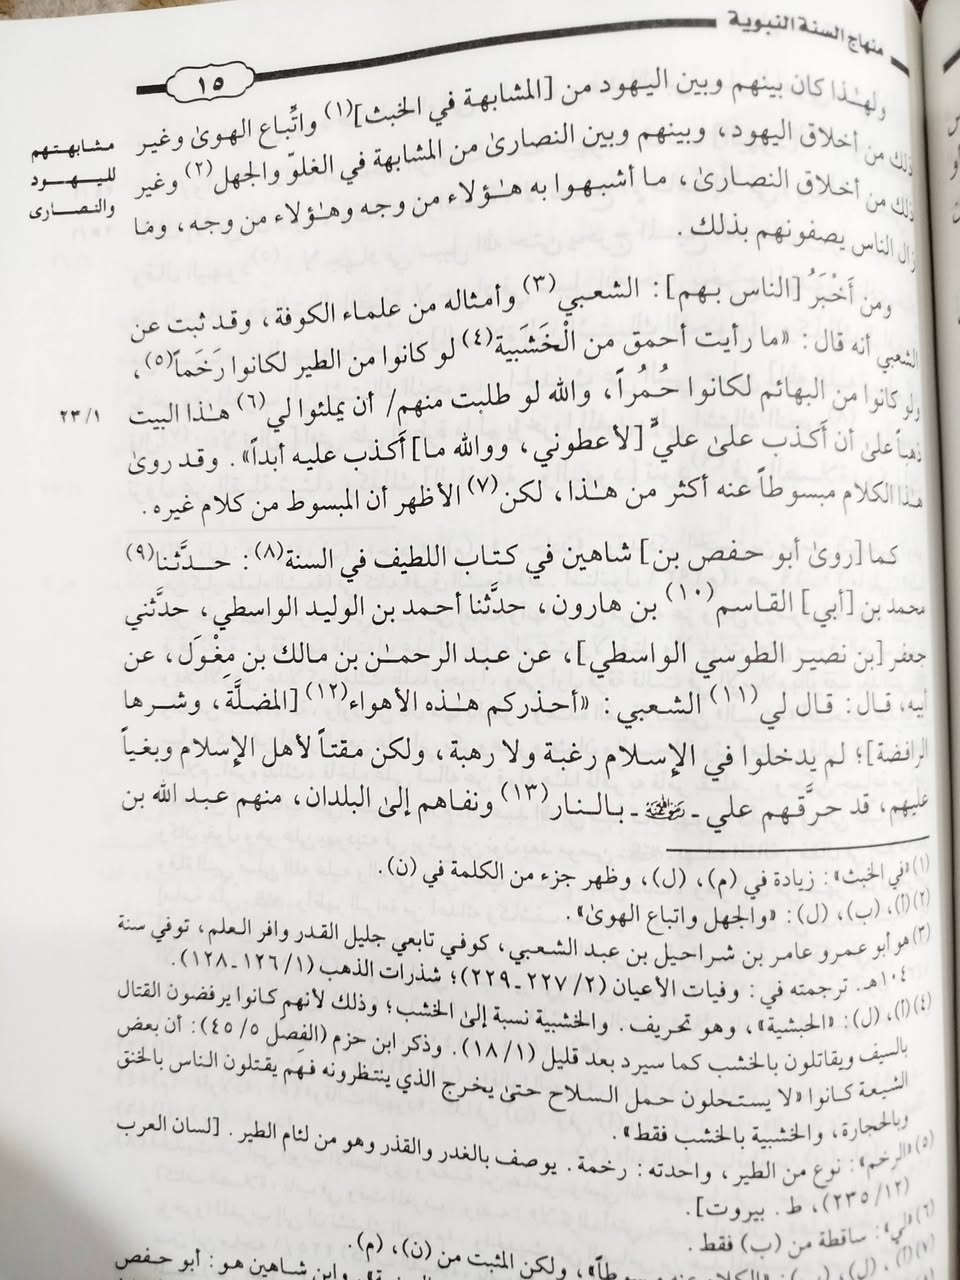 منهاج السنة النبوية
١٥
ولهٰذا كان بينهم وبين اليهود من [المشابهة في الخبث](١) واتِّباع الهوىٰ وغير
ذلك من أخلاق اليهود، وبينهم وبين النصارىٰ من المشابهة في الغلوّ والجهل(٢) وغير
ذلك من أخلاق النصارىٰ، ما أشبهوا به هٰؤلاء من وجه وهٰؤلاء من وجه، وما
زال الناس يصفونهم بذلك.
مشابهتهم
لليهود
والنصارى
ومن أَخْبَرُ [الناس بهم]: الشعبي(٣) وأمثاله من علماء الكوفة، وقد ثبت عن
الشعبي أنه قال: «ما رأيت أحمق من الْخَشَبية(٤) لو كانوا من الطير لكانوا رَخَماً(٥)،
ولو كانوا من البهائم لكانوا حُمُراً، والله لو طلبت منهم/ أن يملئوا لي(٦) هٰذا البيت
٢٣/١
ذهباً علىٰ أن أَكذب علىٰ عليٍّ [لأعطوني، ووالله ما] أَكذب عليه أبداً». وقد روىٰ
هٰذا الكلام مبسوطاً عنه أكثر من هٰذا، لكن(٧) الأظهر أن المبسوط من كلام غيره.
كما [روىٰ أبو حفص بن] شاهين في كتاب اللطيف في السنة(٨): حدَّثنا(٩)
محمد بن [أبي] القاسم(١٠) بن هارون، حدَّثنا أحمد بن الوليد الواسطي، حدَّثني
جعفر [بن نصير الطوسي الواسطي]، عن عبد الرحمـٰن بن مالك بن مِغْوَل، عن
أبيه، قال: قال لي(١١) الشعبي: «أحذركم هٰذه الأهواء(١٢) [المضلَّة، وشرها
الرافضة]؛ لم يدخلوا في الإسلام رغبة ولا رهبة، ولكن مقتاً لأهل الإسلام وبغياً
عليهم، قد حرَّقهم علي ـ رضي الله عنه ـ بالنار(١٣) ونفاهم إلىٰ البلدان، منهم عبد الله بن
(١) «في الخبث»: زيادة في (م)، (ل)، وظهر جزء من الكلمة في (ن).
(٢) (أ)، (ب)، (ل): «والجهل واتباع الهوىٰ».
(٣) هو أبو عمرو عامر بن شراحيل بن عبد الشعبي، كوفي تابعي جليل القدر وافر العلم، توفي سنة
١٠٤هـ. ترجمته في: وفيات الأعيان (٢/ ٢٢٧ ـ ٢٢٩)؛ شذرات الذهب (١/ ١٢٦ ـ ١٢٨).
(٤) (أ)، (ل): «الحبشية»، وهو تحريف. والخشبية نسبة إلىٰ الخشب؛ وذلك لأنهم كانوا يرفضون القتال
بالسيف ويقاتلون بالخشب كما سيرد بعد قليل (١/ ١٨). وذكر ابن حزم (الفِصل ٥/ ٤٥): أن بعض
الشيعة كانوا «لا يستحلون حمل السلاح حتىٰ يخرج الذي ينتظرونه فهم يقتلون الناس بالخنق
وبالحجارة، والخشبية بالخشب فقط».
(٥) «الرخم»: نوع من الطير، واحدته: رخمة. يوصف بالغدر والقذر وهو من لئام الطير. [لسان العرب
(١٢/ ٢٣٥)، ط. بيروت].
(٦) «لي»: ساقطة من (ب) فقط.
(٧) (أ)، (ل)، «الكلام عنه مبسوطاً»، ولكن المثبت من (ن)، (م).
وابن شاهين هو: أبو حفص